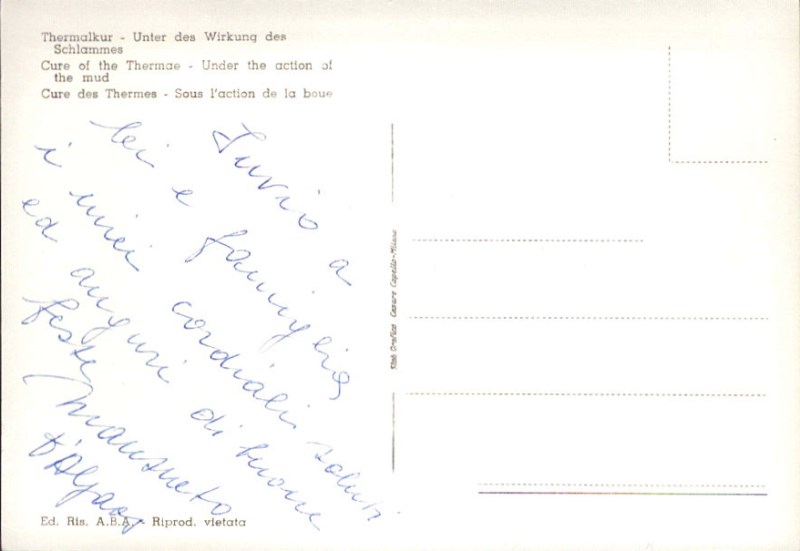 Thermalkur - Unter des Wirkung des
Schlammes
Cure of the Thermae - Under the action of
the mud
Cure des Thermes - Sous l'action de la boue
Invio a
lei e famiglia
i miei cordiali saluti
ed auguri di buone
feste
Mansueto
Stab. Grafico Cesare Capello-Milano
Ed. Ris. A.B.A. - Riprod. vietata